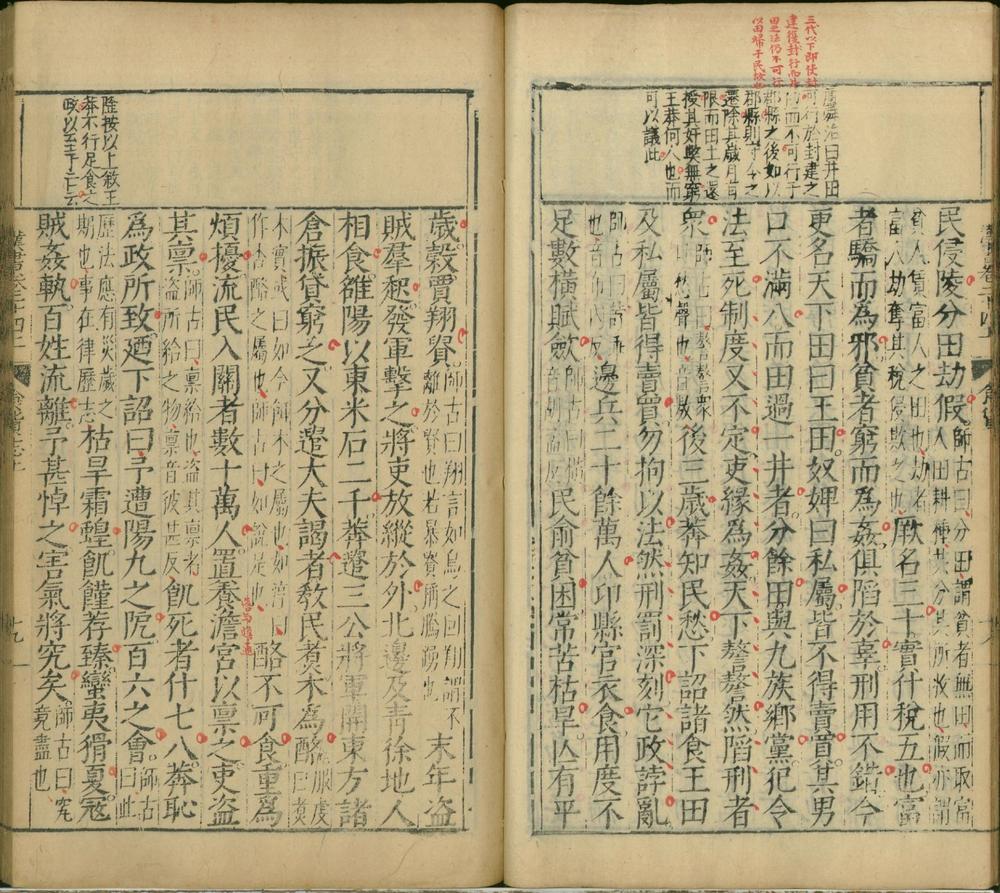 三代以下即使封
建復封行而井
田之法仍不可行
以田歸于民故也
曰井田
可行於封建之
而不可行于
郡縣之後如以
郡縣則守令之
遷除其歲月有
限而田土之還
授其奸弊無窮
王莽何人也而
可以議此
民侵陵分田劫假師古曰分田謂貧者無田而取富
人田耕種共分其所收也假亦謂
貧人賃富人之田也劫者
富人劫奪其稅侵欺之也厥名三十實什稅五也富
者驕而爲邪貧者窮而爲姦俱陷於辜刑用不錯今
更名天下田曰王田奴婢曰私屬皆不得賣買其男
口不滿八而田過一井者分餘田與九族鄉黨犯令
法至死制度又不定吏緣爲姦天下謷謷然陷刑者
衆師古曰謷謷衆
聲也音敖後三歲莽知民愁下詔諸食王田
及私屬皆得賣買勿拘以法然刑罰深刻它政誖亂
師古曰誖乖
也音布內反邊兵二十餘萬人卬縣官衣食用度不
足數橫賦斂師古曰橫
音胡孟反民俞貧困常苦枯旱亡有平
歲穀賈翔貴師古曰翔言如鳥之回翔謂不
離於貴也若暴貴稱騰踴也末年盜
賊羣起發軍擊之將吏放縱於外北邊及青徐地人
相食雒陽以東米石二千莽遣三公將軍開東方諸
倉振貸窮乏又分遣大夫謁者敎民煮木爲酪服虔
曰煮
木實或曰如今餌木之屬也如淳曰
作杏酪之屬也師古曰如說是也酪不可食重爲
煩擾流民入關者數十萬人置養澹官以禀之吏盜
其禀師古曰禀給也盜其禀者
盜所給之物禀音彼甚反飢死者什七八莽恥
爲政所致廼下詔曰予遭陽九之阨百六之會師古
曰此
歷法應有災歲之
期也事在律歷志枯旱霜蝗飢饉荐臻蠻夷猾夏寇
賊姦軌百姓流離予甚悼之害氣將究矣師古曰究
竟盡也
陞按以上敘王
莽不行足食之
政以至于亡云